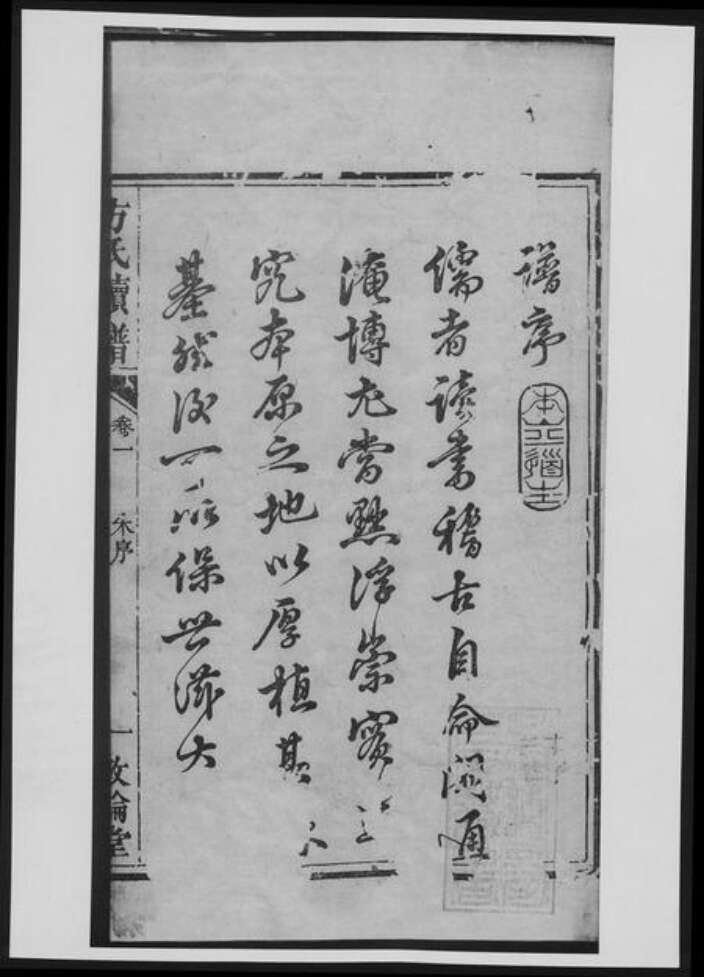 譜序
本立道生
儒者讀書稽古自命淵通
淹博尤當黜浮崇實
究本原之地以厚植其
基然後可能保世滋大
方氏續譜
卷一
朱序
一
敦倫堂